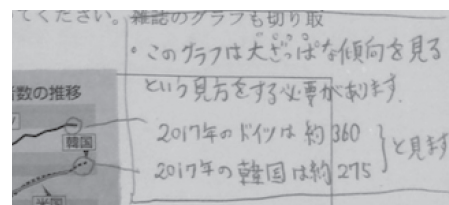 てください。雑誌のグラフも切り取
・このグラフは大ざっぱな傾向を見る
という見方をする必要があります.
数の推移
2017年のドイツは約360
韓国
2017年の韓国は約275
と見ます
米国